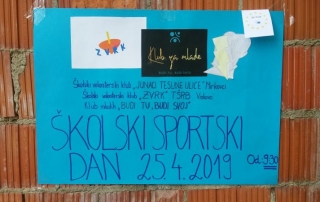 ZVRK
Klub za mlade
Školski volonterski klub „JUNACI TESLINE ULICE" Mirkovci
Školski volonterski klub „ZVRK" TŠRB Vukovar
Klub mladih „BUDI TU, BUDI SVOJ"
ŠKOLSKI SPORTSKI
DAN 25.4.2019
Od 9:30